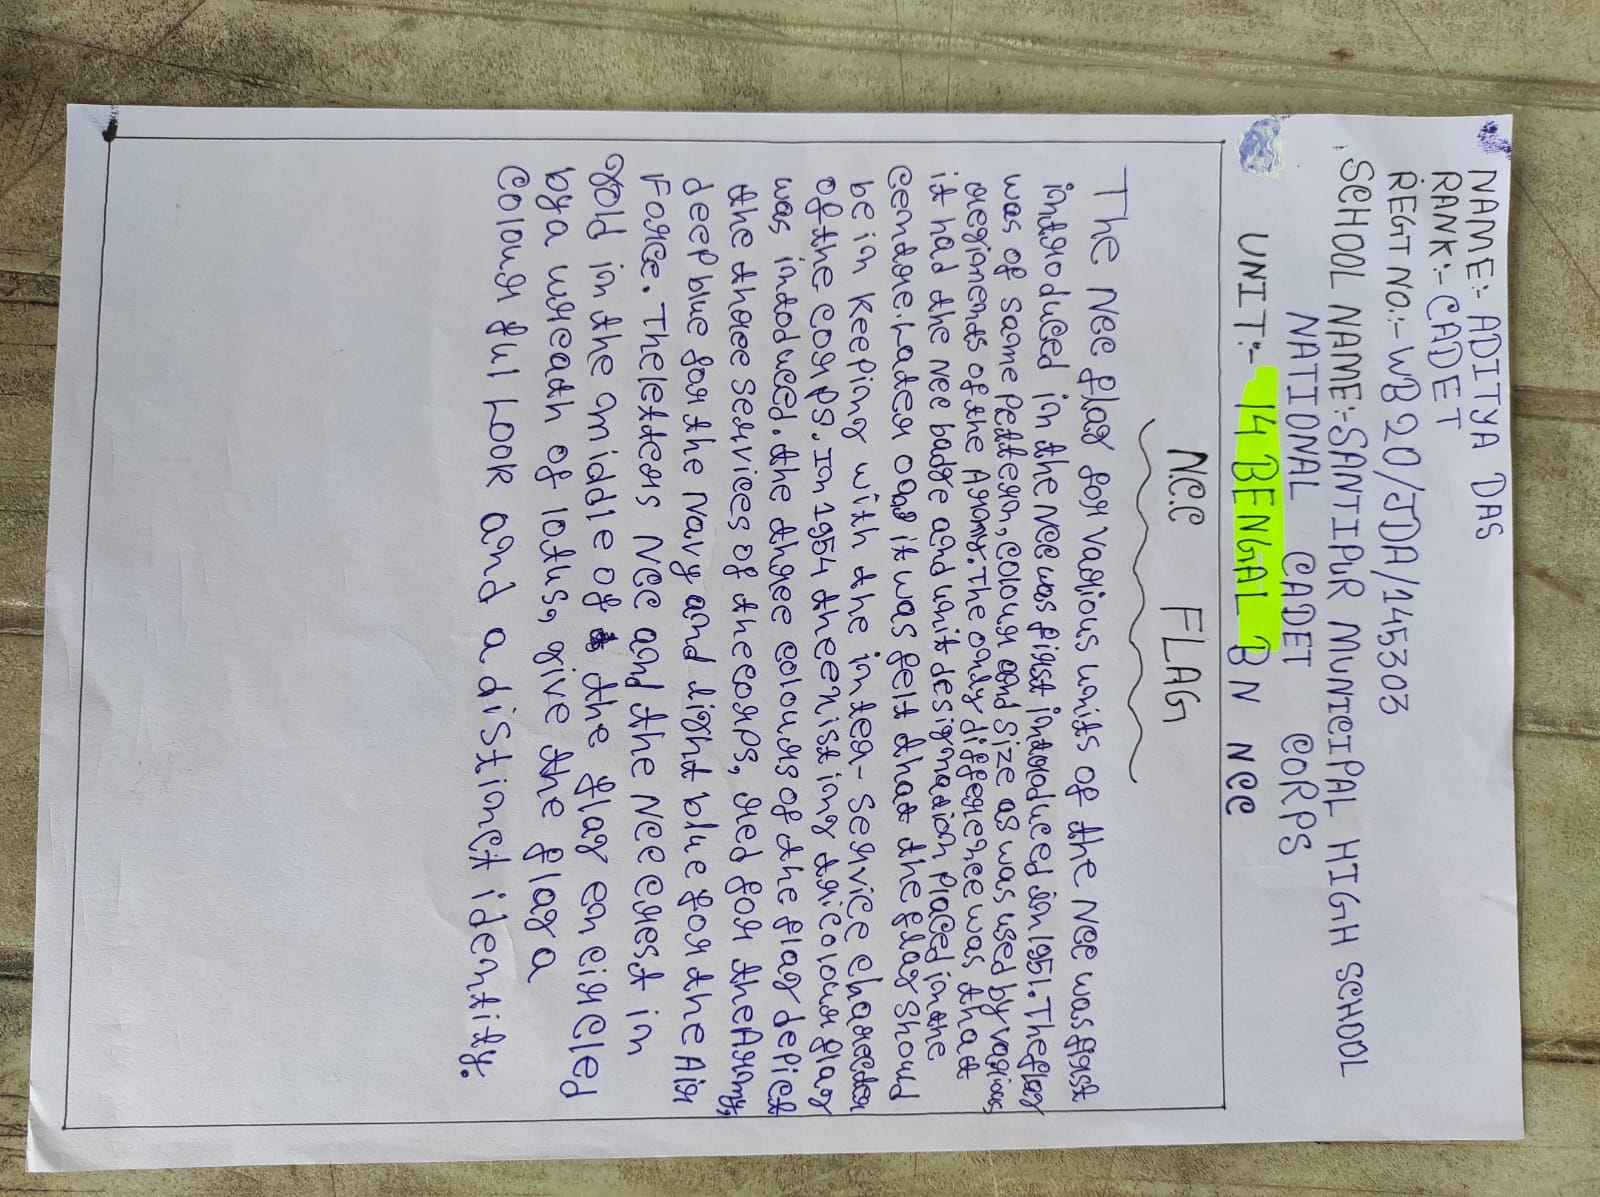 NAME:- ADITYA DAS
RANK:- CADET
REGT NO.:- WB20/JDA/145303
SCHOOL NAME:- SANTIPUR MUNICIPAL HIGH SCHOOL
NATIONAL CADET CORPS
UNIT:- 14 BENGAL BN NCC
NCC FLAG
The NCC flag for various units of the NCC was first
introduced in the NCC was first introduced in 1951. The flag
was of same pettern, colour and size as was used by various
regiments of the Army. The only difference was that
it had the NCC badge and unit designation placed in the
centre. Later on it was felt that the flag shoud
be in keeping with the inter-service charecter
of the corps. In 1954 the existing tricolour flag
was intoduced. the three colours of the flag depict
the three services of the corps, red for the Army,
deep blue for the Navy and light blue for the Air
Force. The letters NCC and the NCC crest in
gold in the middle of the flag encircled
by a wreath of lotus, give the flag a
colour ful look and a distinct identity.